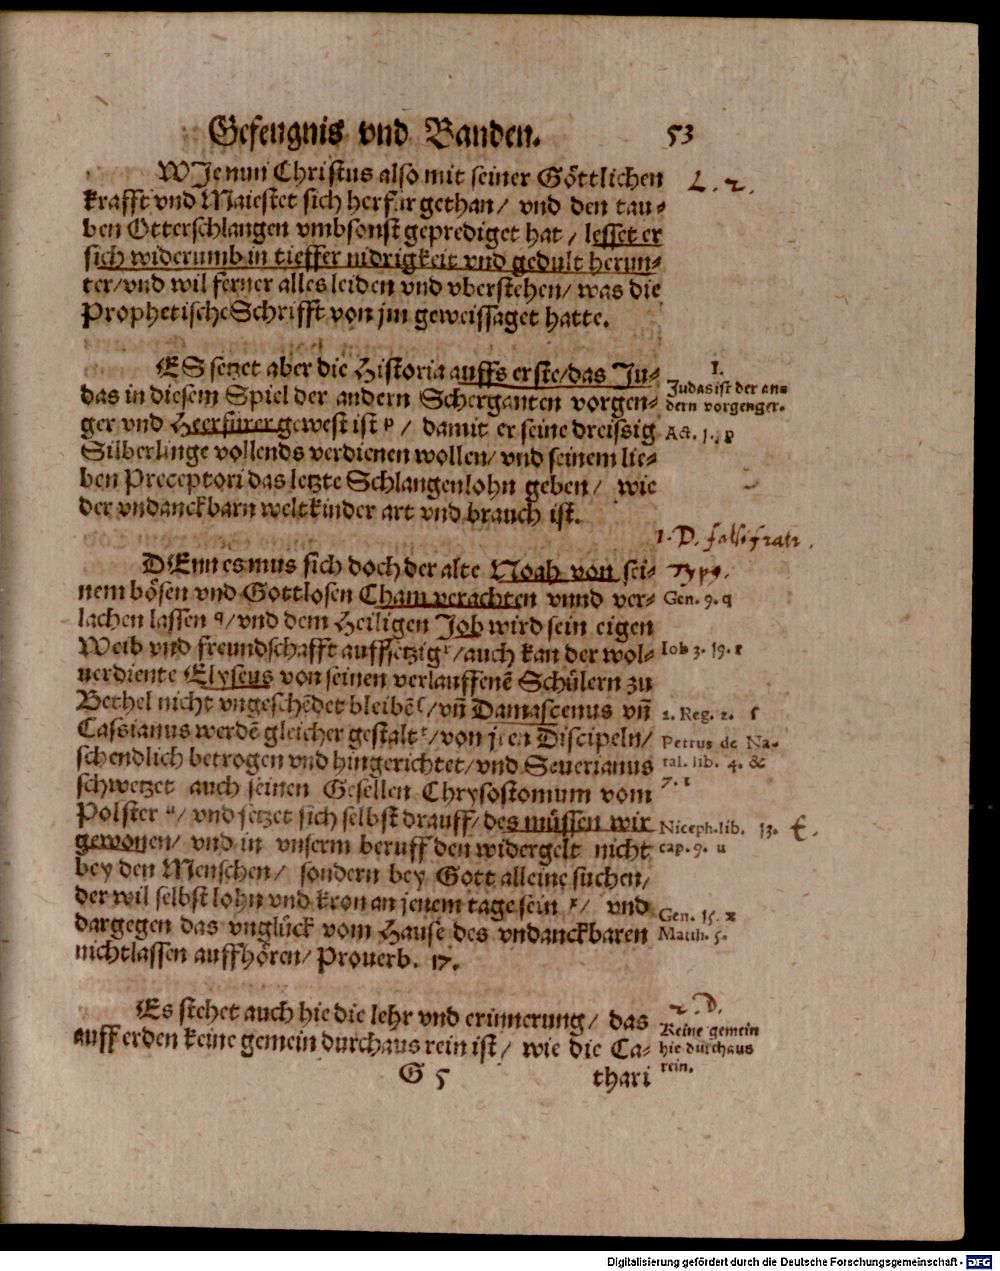 Gefengnis vnd Banden. 53
WJe nun Christus also mit seiner Göttlichen
L. 2.
krafft vnd Maiestet sich herfür gethan/ vnd den tau-
ben Otterschlangen vmbsonst geprediget hat/ lesset er
sich widerumb in tieffer nidrigkeit vnd gedult herun-
ter/ vnd wil ferner alles leiden vnd vberstehen/ was die
Prophetische Schrifft von jm geweissaget hatte.
ES setzet aber die Historia auffs erste/ das Ju-
das in diesem Spiel der andern Scherganten vorgen-
ger vnd Heerfürer gewest ist p/ damit er seine dreissig
Silberlinge vollends verdienen wollen/ vnd seinem lie-
ben Preceptori das letzte Schlangenlohn geben/ wie
der vndanckbarn weltkinder art vnd brauch ist.
I.
Judas ist der an-
dern vorgenger.
Act. 1. p
1. D. falsi fratr.
Typg.
DEnn es mus sich doch der alte Noah von sei-
nem bösen vnd Gottlosen Cham verachten vnnd ver-
lachen lassen q/ vnd dem Heiligen Job wird sein eigen
Weib vnd freundschafft auffsetzig r/ auch kan der wol-
uerdiente Elyseus von seinen verlauffenē Schülern zu
Bethel nicht vngeschēdet bleibē ſ/ vñ Damascenus vñ
Cassianus werdē gleicher gestalt t/ von jren Discipeln/
schendlich betrogen vnd hingerichtet/ vnd Seuerianus
schwetzet auch seinen Gesellen Chrysostomum vom
Polster u/ vnd setzet sich selbst drauff/ des müssen wir
gewonen/ vnd in vnserm beruff den widergelt nicht
bey den Menschen/ sondern bey Gott alleine suchen/
der wil selbst lohn vnd kron an jenem tage sein x/ vnd
dargegen das vnglück vom Hause des vndanckbaren
nicht lassen auffhören/ Prouerb. 17.
Gen. 9. q
Iob 3. 19. r
2. Reg. 2. ſ
Petrus de Na-
tal. lib. 4. &
7. t
Niceph. lib. 13.
cap. 9. u
Gen. 15. x
Matth. 5.
Es stehet auch hie die lehr vnd erinnerung/ das
auff erden keine gemein durchaus rein ist/ wie die Ca-
2. D.
Keine gemein
hie durchaus
rein.
G 5 thari
Digitalisierung gefördert durch die Deutsche Forschungsgemeinschaft - DFG